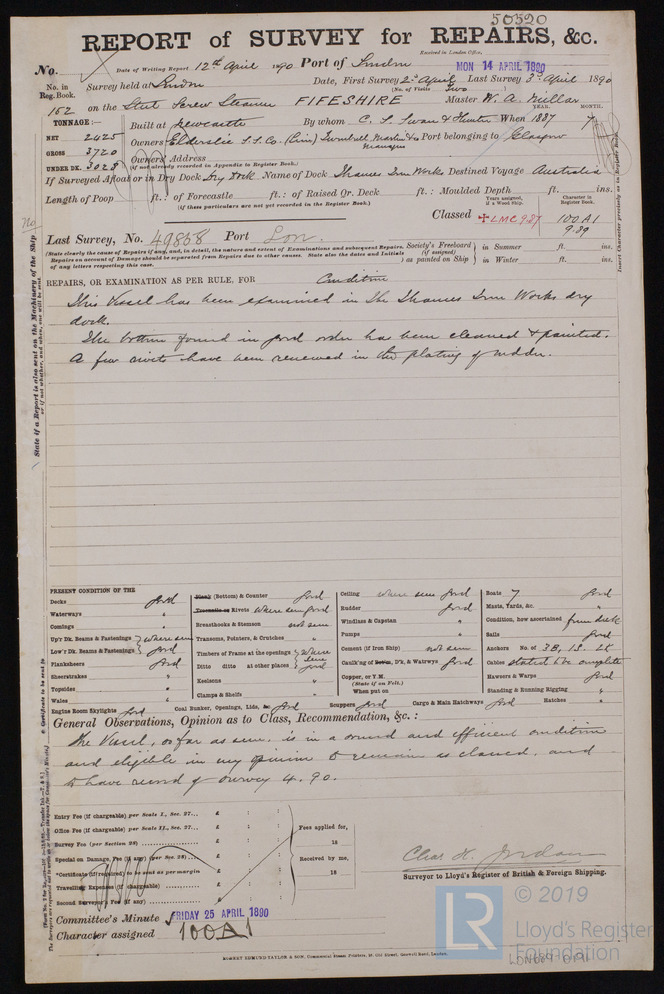 50520
REPORT of SURVEY for REPAIRS, &c.
Received in London Office,
No. Date of Writing Report 12th April 1890 Port of London MON 14 APRIL 1890
No. in Reg. Book. Survey held at London Date, First Survey 2nd April Last Survey 3rd April 1890
(No. of Visits Two
152 on the Steel Screw Steamer FIFESHIRE Master W. A. Millar
TONNAGE:— YEAR. MONTH.
NET 2425 Built at Newcastle By whom C. S. Swan & Hunter When 1887 7
GROSS 3720 Owners Elderslie S.S. Co. (Lim) Turnbull, Martin & Co Managers Port belonging to Glasgow
UNDER DK. 3023 Owners' Address
(if not already recorded in Appendix to Register Book.)
If Surveyed Afloat or in Dry Dock Dry Dock Name of Dock Thames Iron Works Destined Voyage Australia
Length of Poop ft.: of Forecastle ft.: of Raised Qr. Deck ft.: Moulded Depth ft. ins.
(if these particulars are not yet recorded in the Register Book.)
Years assigned, if a Wood Ship. Character in Register Book.
Classed ✠LMC 9.87 100A1
9.89
Last Survey, No. 49868 Port Lon.
(State clearly the cause of Repairs if any, and, in detail, the nature and extent of Examinations and subsequent Repairs.
Repairs on account of Damage should be separated from Repairs due to other causes. State also the dates and Initials
of any letters respecting this case.
Society's Freeboard (if assigned) as painted on Ship
in Summer ft. ins.
in Winter ft. ins.
REPAIRS, OR EXAMINATION AS PER RULE, FOR Condition
This Vessel has been examined in the Thames Iron Works dry
dock.
The bottom found in good order has been cleaned & painted.
A few rivets have been renewed in the plating of rudder.
PRESENT CONDITION OF THE
Decks good
Waterways "
Comings "
Up'r Dk. Beams & Fastenings where seen
Low'r Dk. Beams & Fastenings good
Planksheers good
Sheerstrakes "
Topsides "
Wales "
Engine Room Skylights good
(Bottom) & Counter good
Rivets where seen good
Breasthooks & Stemson not seen
Transoms, Pointers, & Crutches "
Timbers of Frame at the openings where seen
Ditto ditto at other places good
Keelsons "
Clamps & Shelfs "
Coal Bunker, Openings, Lids, &c. good
Ceiling where seen good
Rudder good
Windlass & Capstan "
Pumps "
Cement (if Iron Ship) not seen
Caulk'ng of D'k, & Watrwys good
Copper, or Y.M.
(State if on Felt.)
When put on
Scuppers good Cargo & Main Hatchways good
Boats 7 good
Masts, Yards, &c. "
Condition, how ascertained from deck
Sails good
Anchors No. of 3B, 1S. 2K
Cables stated to be complete
Hawsers & Warps good
Standing & Running Rigging "
Hatches "
General Observations, Opinion as to Class, Recommendation, &c.:
The Vessel, so far as seen, is in a sound and efficient condition
and eligible in my opinion to remain as classed, and
to have record of survey 4.90.
Entry Fee (if chargeable) per Scale I., Sec. 27... £ : :
Office Fee (if chargeable) per Scale II., Sec. 27... £ : :
Survey Fee (per Section 28) £ : :
Special on Damage Fee (if any) (per Sec. 28) £ : :
*Certificate (if required) to be sent as per margin
Travelling Expenses (if chargeable) £ : :
Second Surveyor's Fee (if any) £ : :
Fees applied for,
18
Received by me,
18
Chas. H. Jordan
Surveyor to Lloyd's Register of British & Foreign Shipping.
Committee's Minute FRIDAY 25 APRIL 1890
Character assigned 100A1
ROBERT EDMUND TAYLOR & SON, Commercial Steam Printers, 19, Old Street, Goswell Road, London.
State if a Report is also sent on the Machinery of the Ship
or if not whether, and when, one will be sent.
No
Insert Character precisely as in Register Book.
Certificate to be sent to
LR
© 2019
Lloyd's Register
Foundation